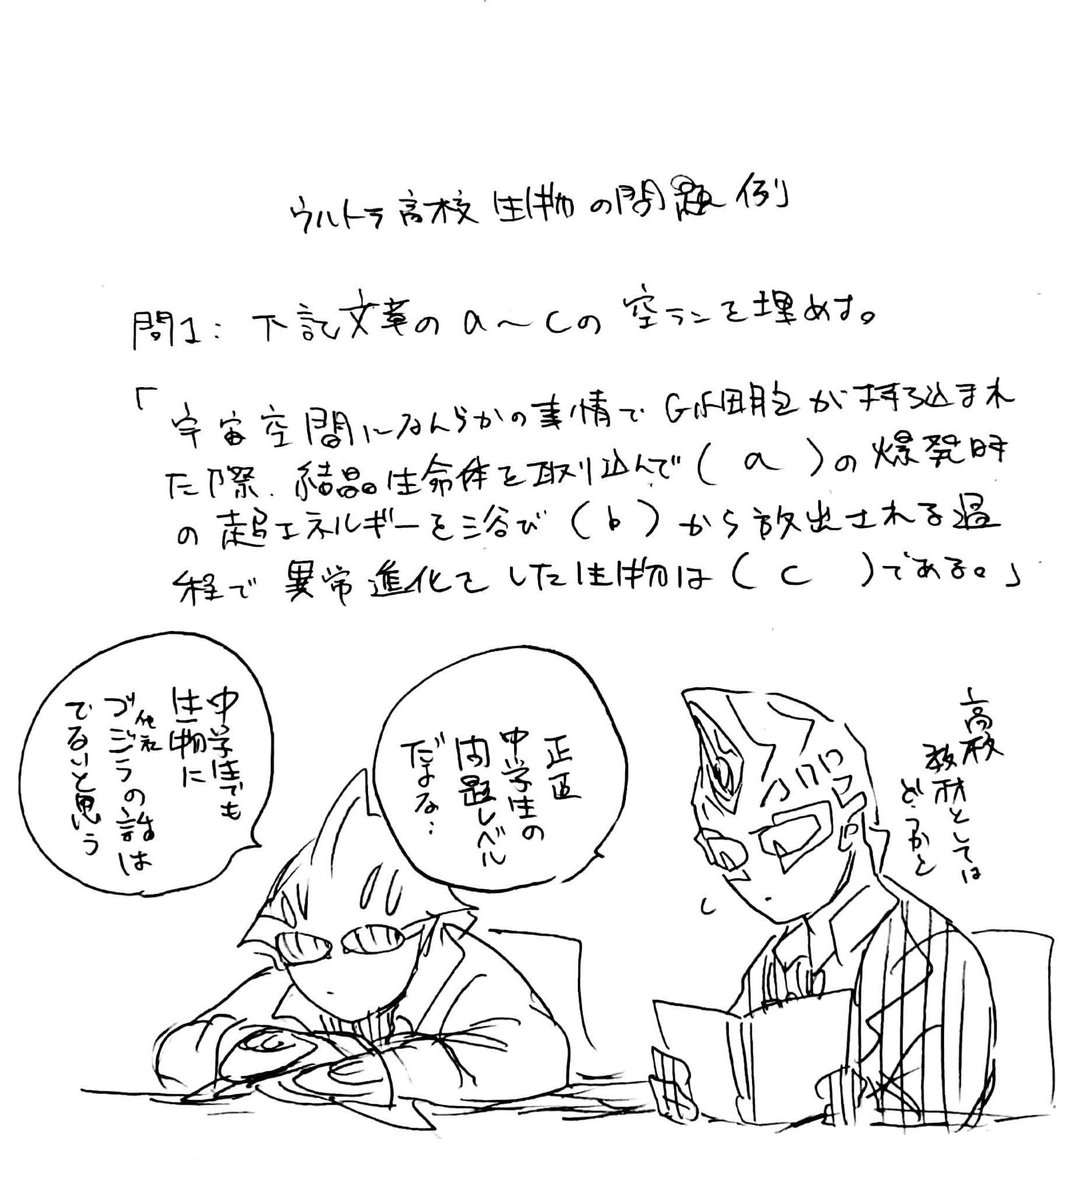 ウルトラ高校 生物の問題例
問1: 下記文章のa〜cの空ランを埋めす。
「宇宙空間になんらかの事情でG細胞が持ち込まれ
た際、結晶生命体を取り込んで( a )の爆発時
の超エネルギーを浴び(b)から放出される過
程で異常進化をした生物は( c )である。」
高校
教材としては
どうかと
正直
中学生の
問題レベル
だよな…
中学生でも
生物に
ゴジラの話は
でないと思う